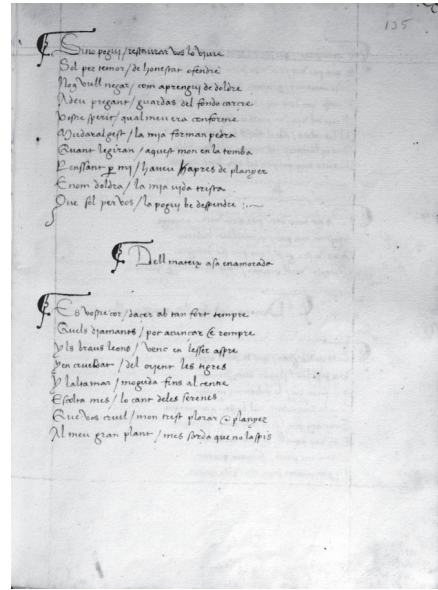 135
Si no pogui / restaurar vos lo viure
Sol per temor / de honestat ofendre
No y vull negar / com aprengui de doldre
A deu pregant / guardas del fondo carcre
Vostre sperit / qual meu era conforme
Mudaralgest / la mia forman pedra
Quant legiran / aquest mon en la tomba
Pensant p mi / haveu apres de planyer
E nom doldra / la mia vida trista
Que sol per vos / la pogui be despendre :~
Dell mateix a sa enamorada
Es vostre cor / dacer ab tan fort tempre
Quels diamants / por acuncar e rompre
Y ls braus leons / venc en lesser aspre
Y en crueldat / del orient les tigres
Y la lta mar / moguda fins al centre
Escolta mes / lo cant deles serenes
Que vos cruel / mon trist plorar e planyer
Al meu gran plant / mes sorda que no laspis